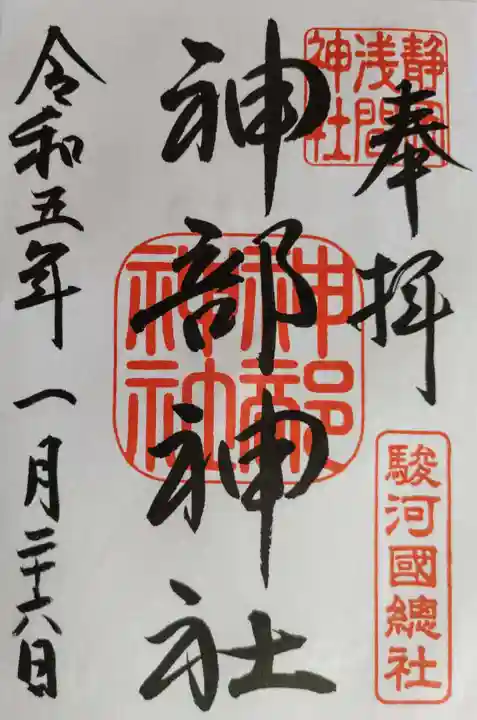 奉拝
静岡浅間神社
駿河國總社
神部神社
神部神社
令和五年一月二十六日